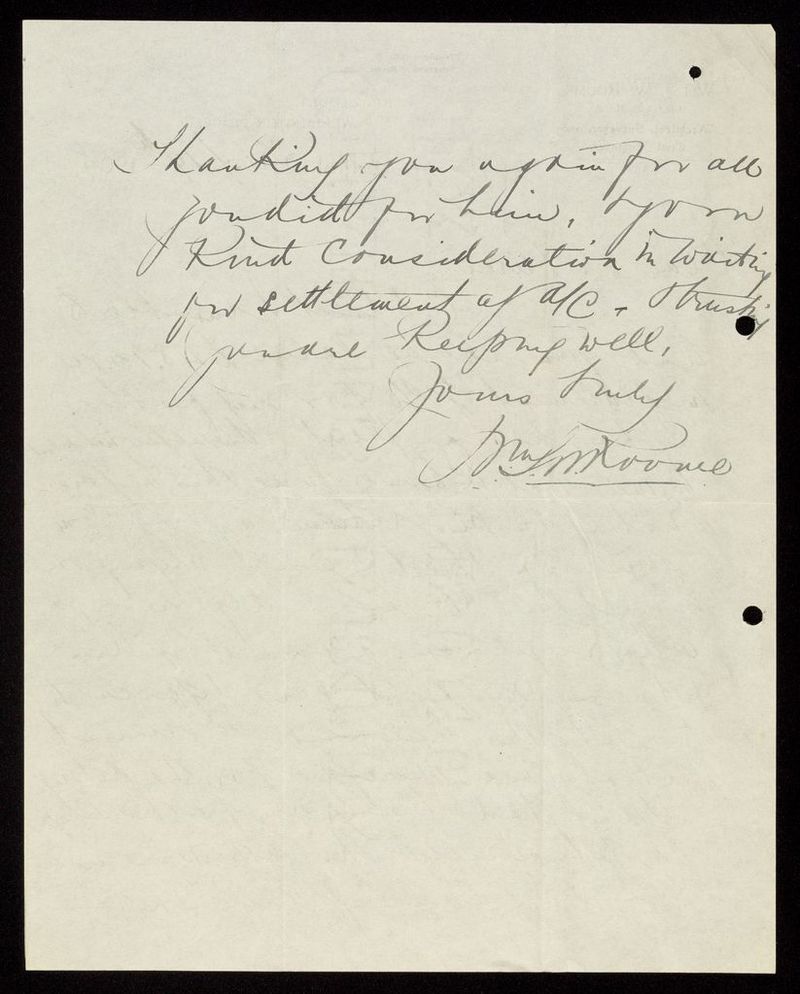 Thanking you again for all
you did for him, & your
Kind Consideration in waiting
for settlement of a/c - & trusting
you are Keeping well,
Yours truly
Roome